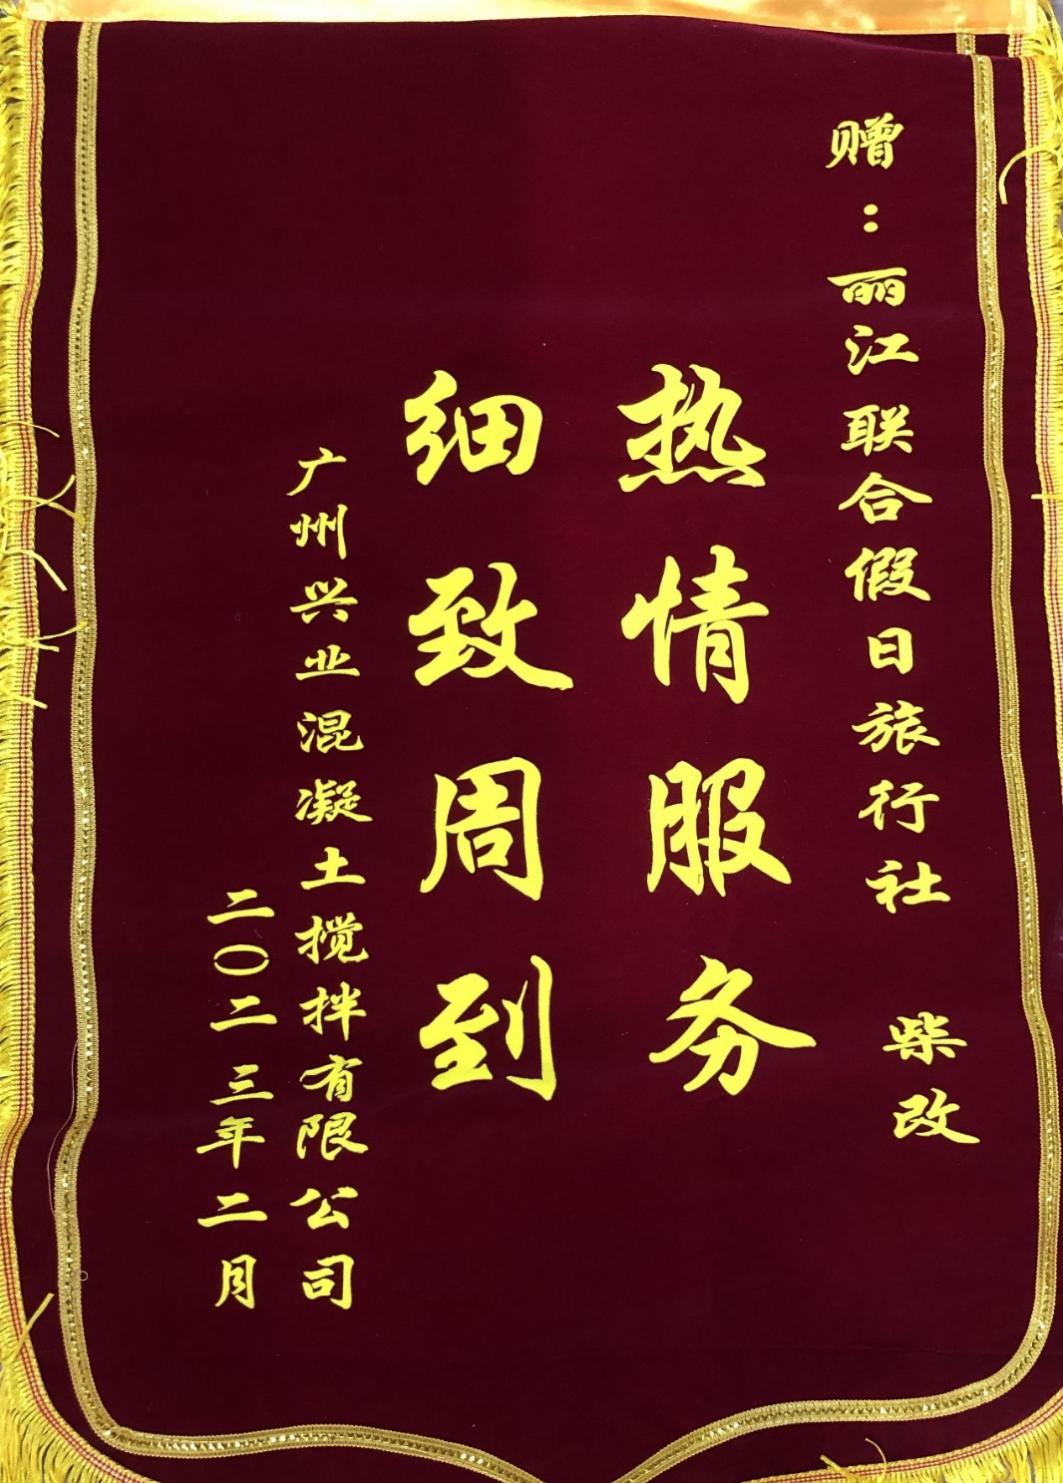 赠：丽江联合假日旅行社 柴改
热情服务
细致周到
广州兴业混凝土搅拌有限公司
二〇二三年二月